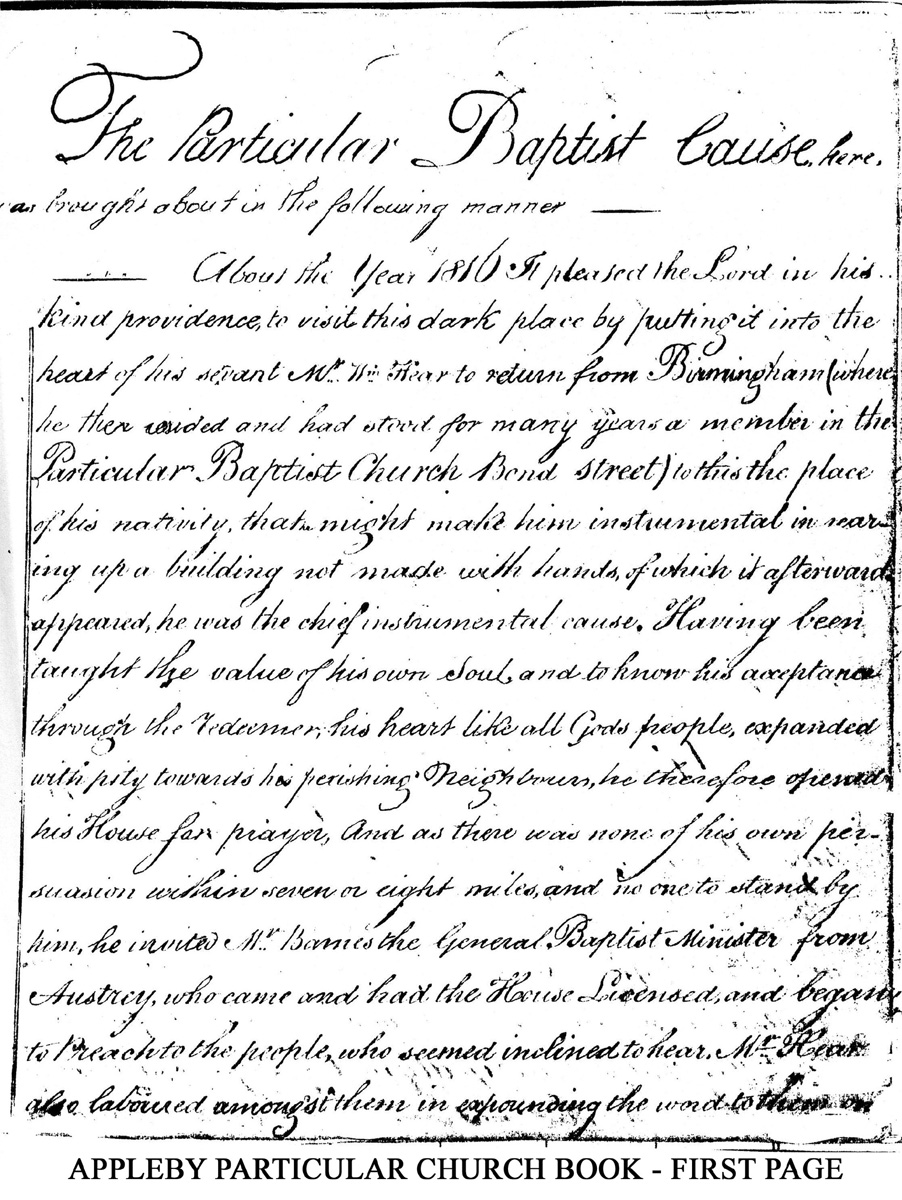 The Particular Baptist Cause, here.
as brought about in the following manner —
About the Year 1816 It pleased the Lord in his
kind providence, to visit this dark place by putting it into the
heart of his servant Mr. Wm Hear to return from Birmingham (where
he then resided and had stood for many years a member in the
Particular Baptist Church Bond street) to this the place
of his nativity, that might make him instrumental in rear-
ing up a building not made with hands, of which it afterwards
appeared, he was the chief instrumental cause. Having been
taught the value of his own Soul, and to know his acceptance
through the Redeemer, his heart like all Gods people, expanded
with pity towards his perishing Neighbours, he therefore opened
his House for prayer, And as there was none of his own per-
suasion within seven or eight miles, and no one to stand by
him, he invited Mr. Barnes the General Baptist Minister from
Austrey, who came and had the House Licensed, and began
to Preach to the people, who seemed inclined to hear. Mr. Hear
also laboured amongst them in expounding the word to them on
APPLEBY PARTICULAR CHURCH BOOK - FIRST PAGE